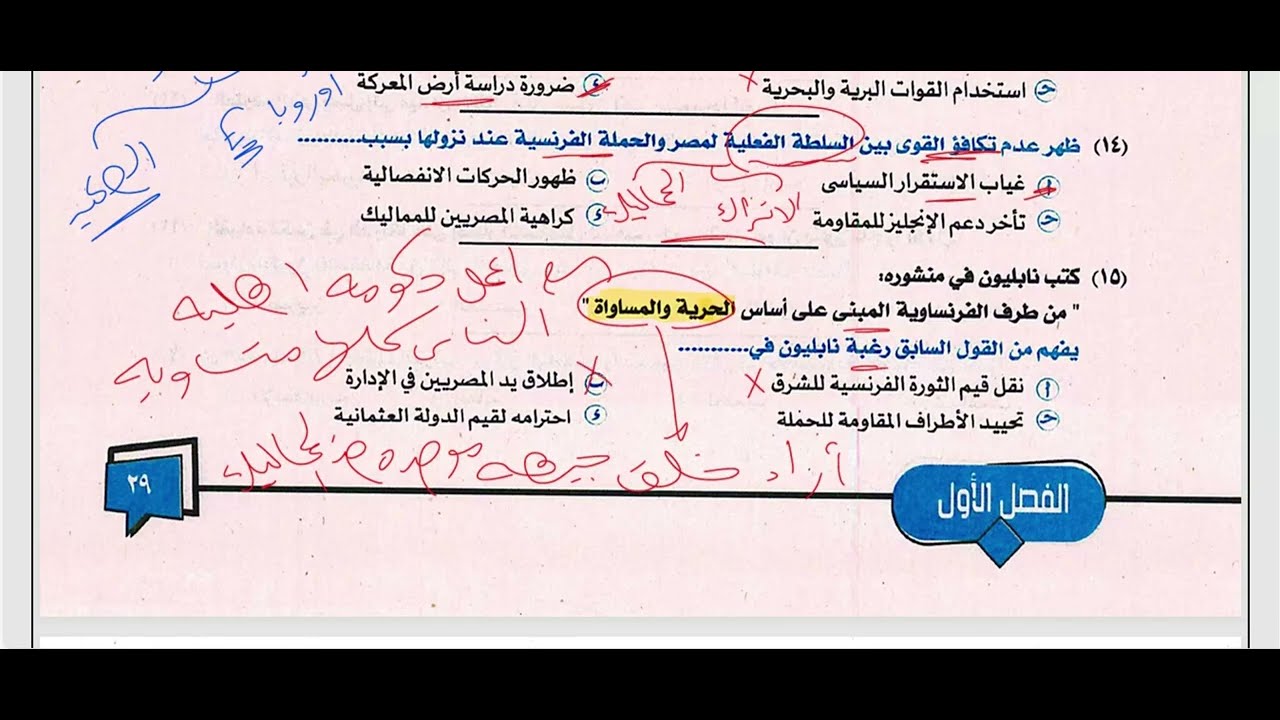 ج استخدام القوات البرية والبحرية
ء ضرورة دراسة أرض المعركة
أوروبا
(١٤) ظهر عدم تكافؤ القوى بين السلطة الفعلية لمصر والحملة الفرنسية عند نزولها بسبب..........
أ غياب الاستقرار السياسى
ب ظهور الحركات الانفصالية
الاتراك المماليك
ج تأخر دعم الإنجليز للمقاومة
ء كراهية المصريين للمماليك
(١٥) كتب نابليون في منشوره:
حكومة اهلية
" من طرف الفرنساوية المبنى على أساس الحرية والمساواة "
الناس كلها متساويه
يفهم من القول السابق رغبة نابليون في...........
أ نقل قيم الثورة الفرنسية للشرق
ب إطلاق يد المصريين في الإدارة
ج تحييد الأطراف المقاومة للحملة
ء احترامه لقيم الدولة العثمانية
أراد خلق جبهه موحده ضد المماليك
الفصل الأول
٢٩